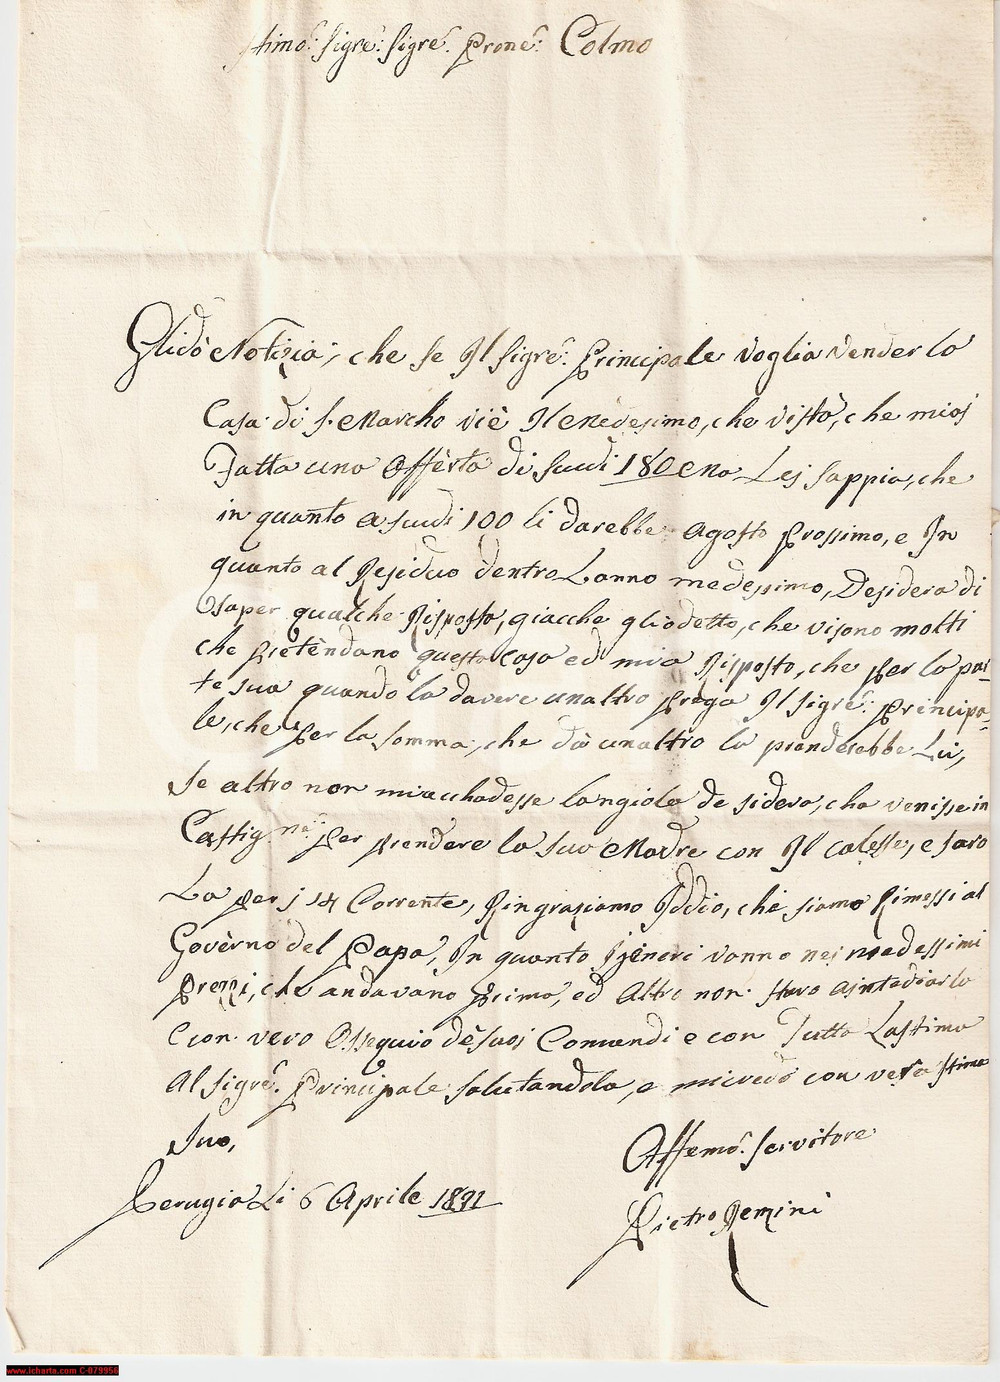 stimo: Sigre: Sigre: Prone: Colmo
Gli dò Notizia, che se Il Sigre: Principale voglia vender la
Casa di S. Marcho viè Il Medesimo, che vistò, che mios
Fatta una Offerta di Scudi 180 Ma Lej sappia, che
in quanto a scudi 100 li darebbe Agosto Prossimo, e In
quanto al Residuo dentro Lanno medessimo, Desidera di
saper qualche Risposta, giacche gliò detto, che visono molti
che pretèndano questa Casa ed mia Risposto, che per la par-
te sua quando la davere unaltro prega Il Sigre: Principa-
le, che per la somma, che dà unaltro la prenderebbe Lui,
Se altro non miacchadesse Langiola desidera, che venisse in
Castigne: per prendere la sua Madre con Il Calesse, e sara
La per j 14 Corrente, Ringraziamo Iddio, che siamo Rimessi al
Govèrno del Papa, In quanto I jeneri vanno nei medessimi
Prezzi, che andavano Prima, ed Altro non starò a intediarlo
Con vero Ossequio dè suoi Comandi e con Tutta Lastima
Al Sigre: Principale salutandola, e micredo con vera stima
Sua,
Affemo: Servitore
Perugia Li 6 Aprile
Pietro Remini
www.icharta.com C-079956